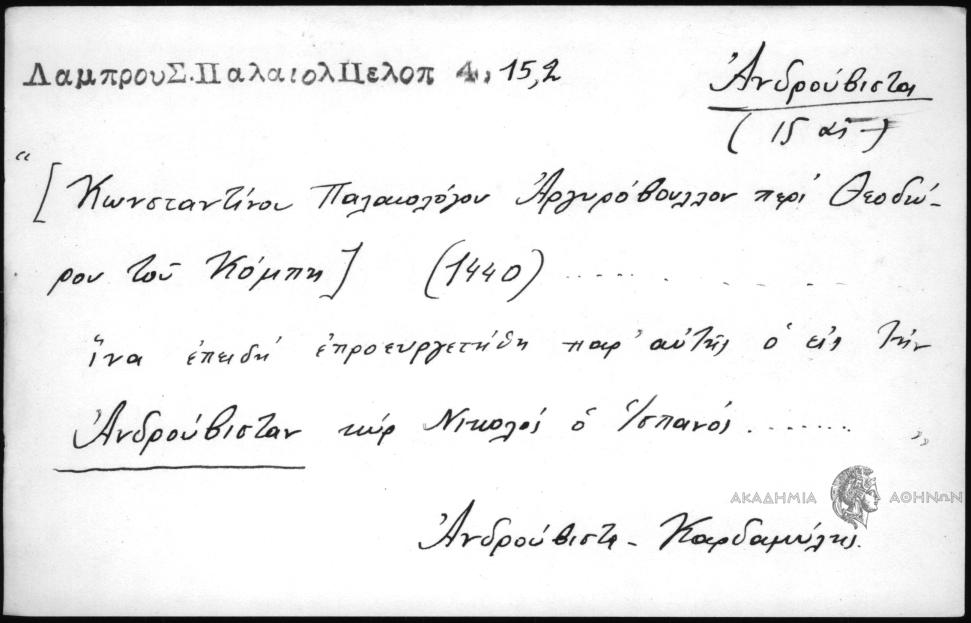 ΛαμπρουΣ.ΠαλαιολΠελοπ 4, 15,2
Ἀνδρούβιστα
(15 αἰ.)
“[Κωνσταντίνου Παλαιολόγου Ἀργυρόβουλλον περί Θεοδώ-
ρου τοῦ Κόμπη] (1440) ..... . . . . .
ἵνα ἐπειδή ἐπροευργετήθη παρ' αὐτῆς ὁ εἰς τήν
Ἀνδρούβισταν κύρ Νικολός ὁ Ἱσπανός ........ „
ΑΚΑΔΗΜΙΑ ΑΘΗΝΩΝ
Ἀνδρούβιστα - Καρδαμύλης.